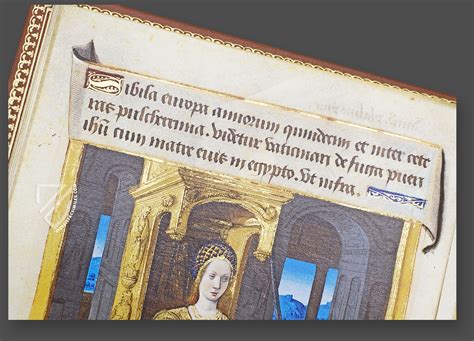 Sibila europa annorum quindecim et inter cete
ras pulcherrima. Videtur vaticinari de fuga pueri
ihū cum matre eius in egypto. Ut infra.